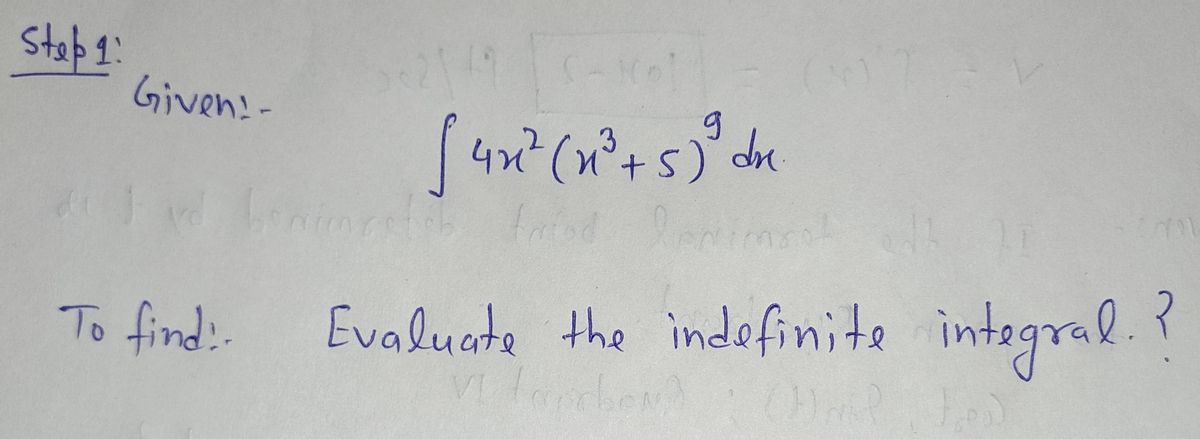 Step 1:
Given:-
∫ 4x² (x³ + 5)⁹ dx.
To find:- Evaluate the indefinite integral.?